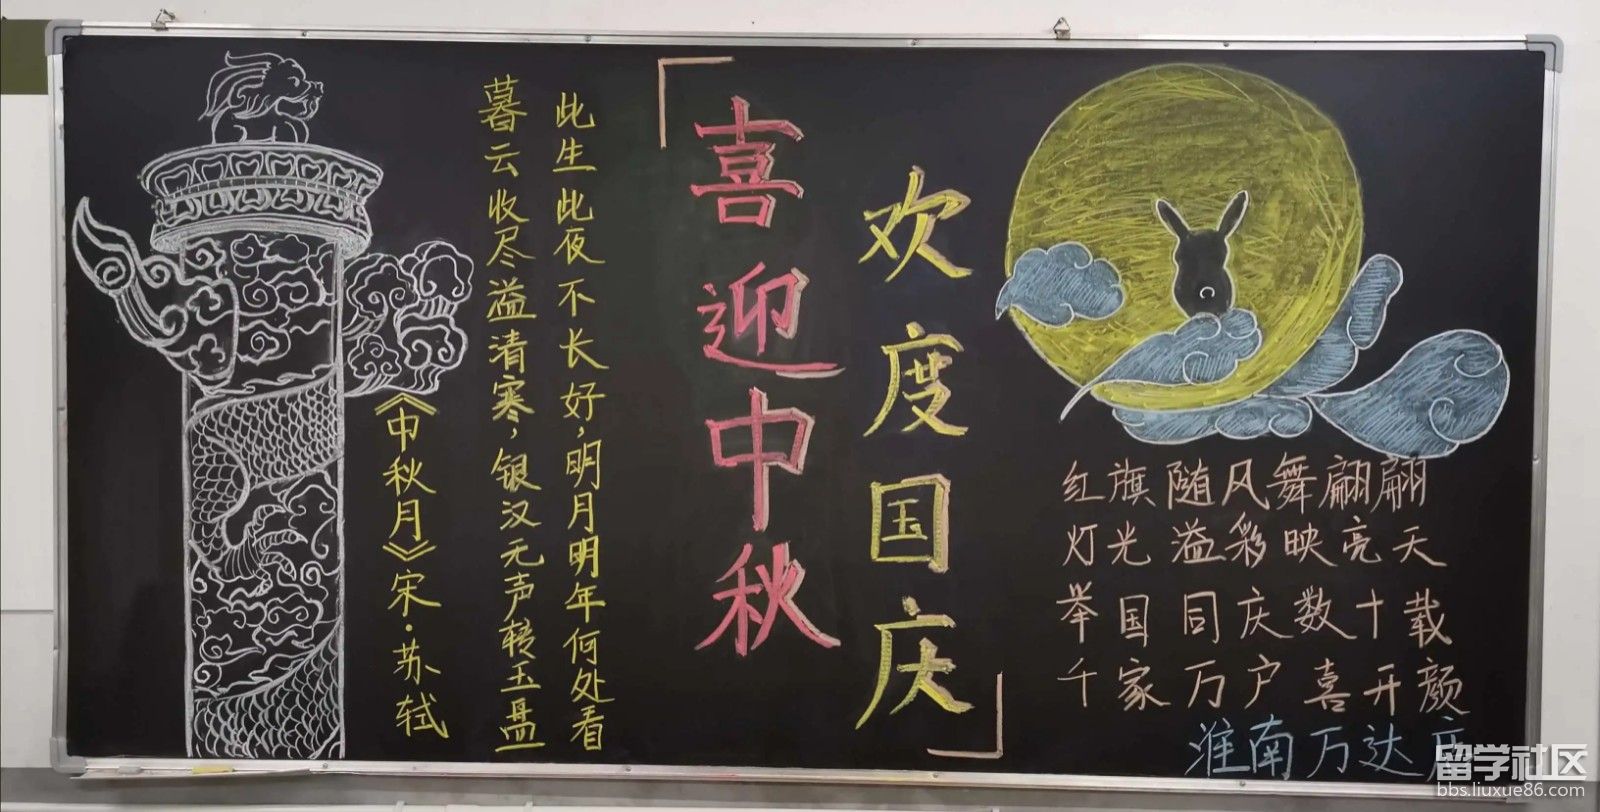 《中秋月》宋·苏轼
暮云收尽溢清寒,银汉无声转玉盘
此生此夜不长好,明月明年何处看
「喜迎中秋
欢度国庆」
红旗随风舞翩翩
灯光溢彩映亮天
举国同庆数十载
千家万户喜开颜
淮南万达店
留学社区
bbs.liuxue86.com